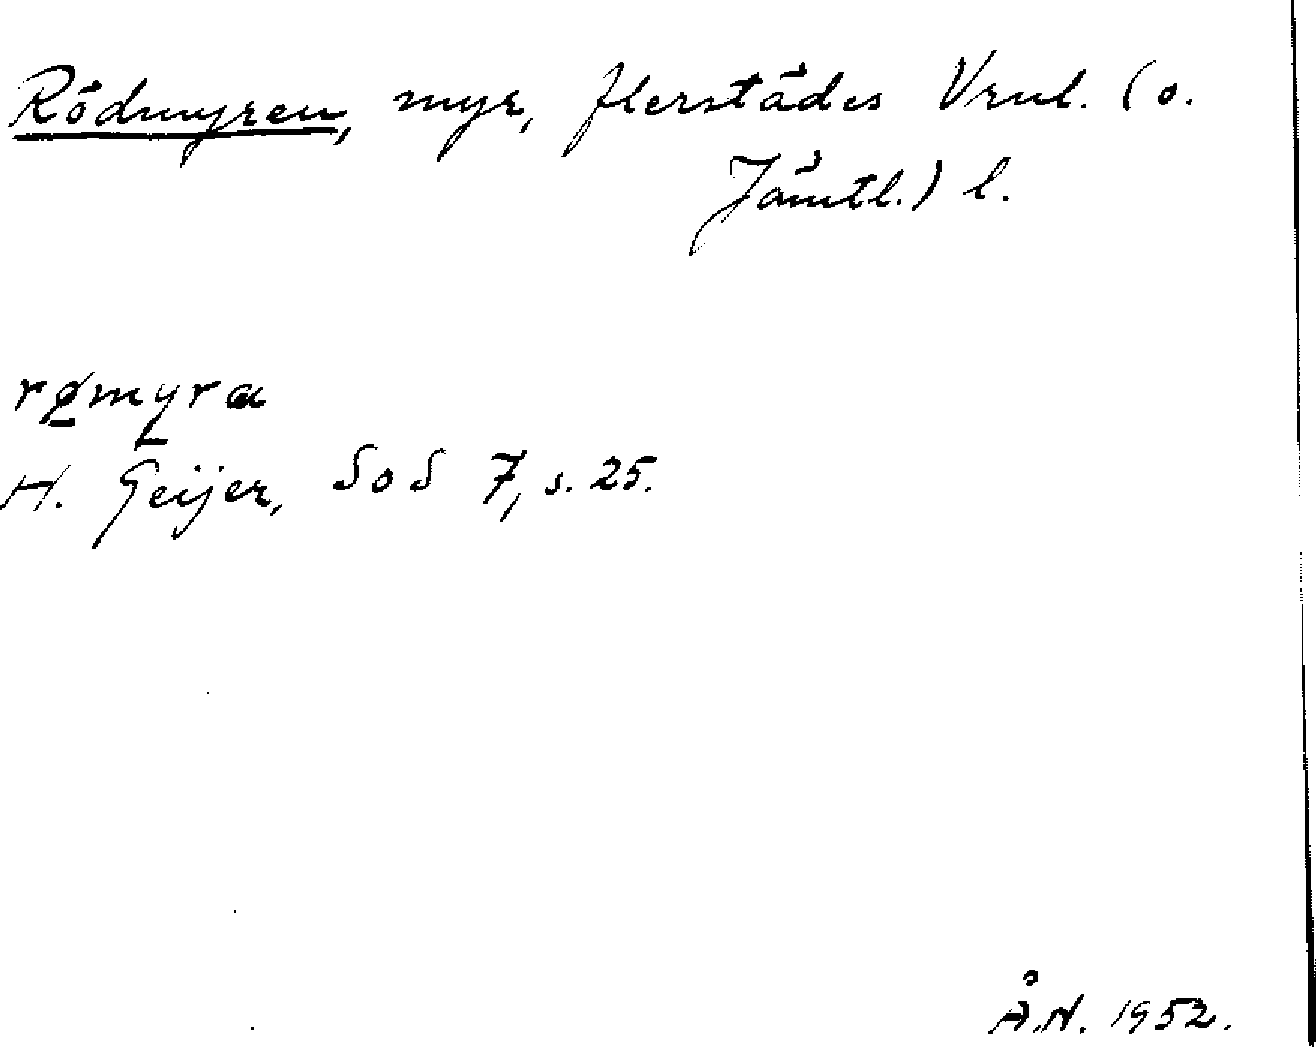 Rödmyren, myr, flerstädes Vrml. (o.
Jämtl.) l.
rømyra
H. Geijer, SoS 7, s. 25.
Å.N. 1952.